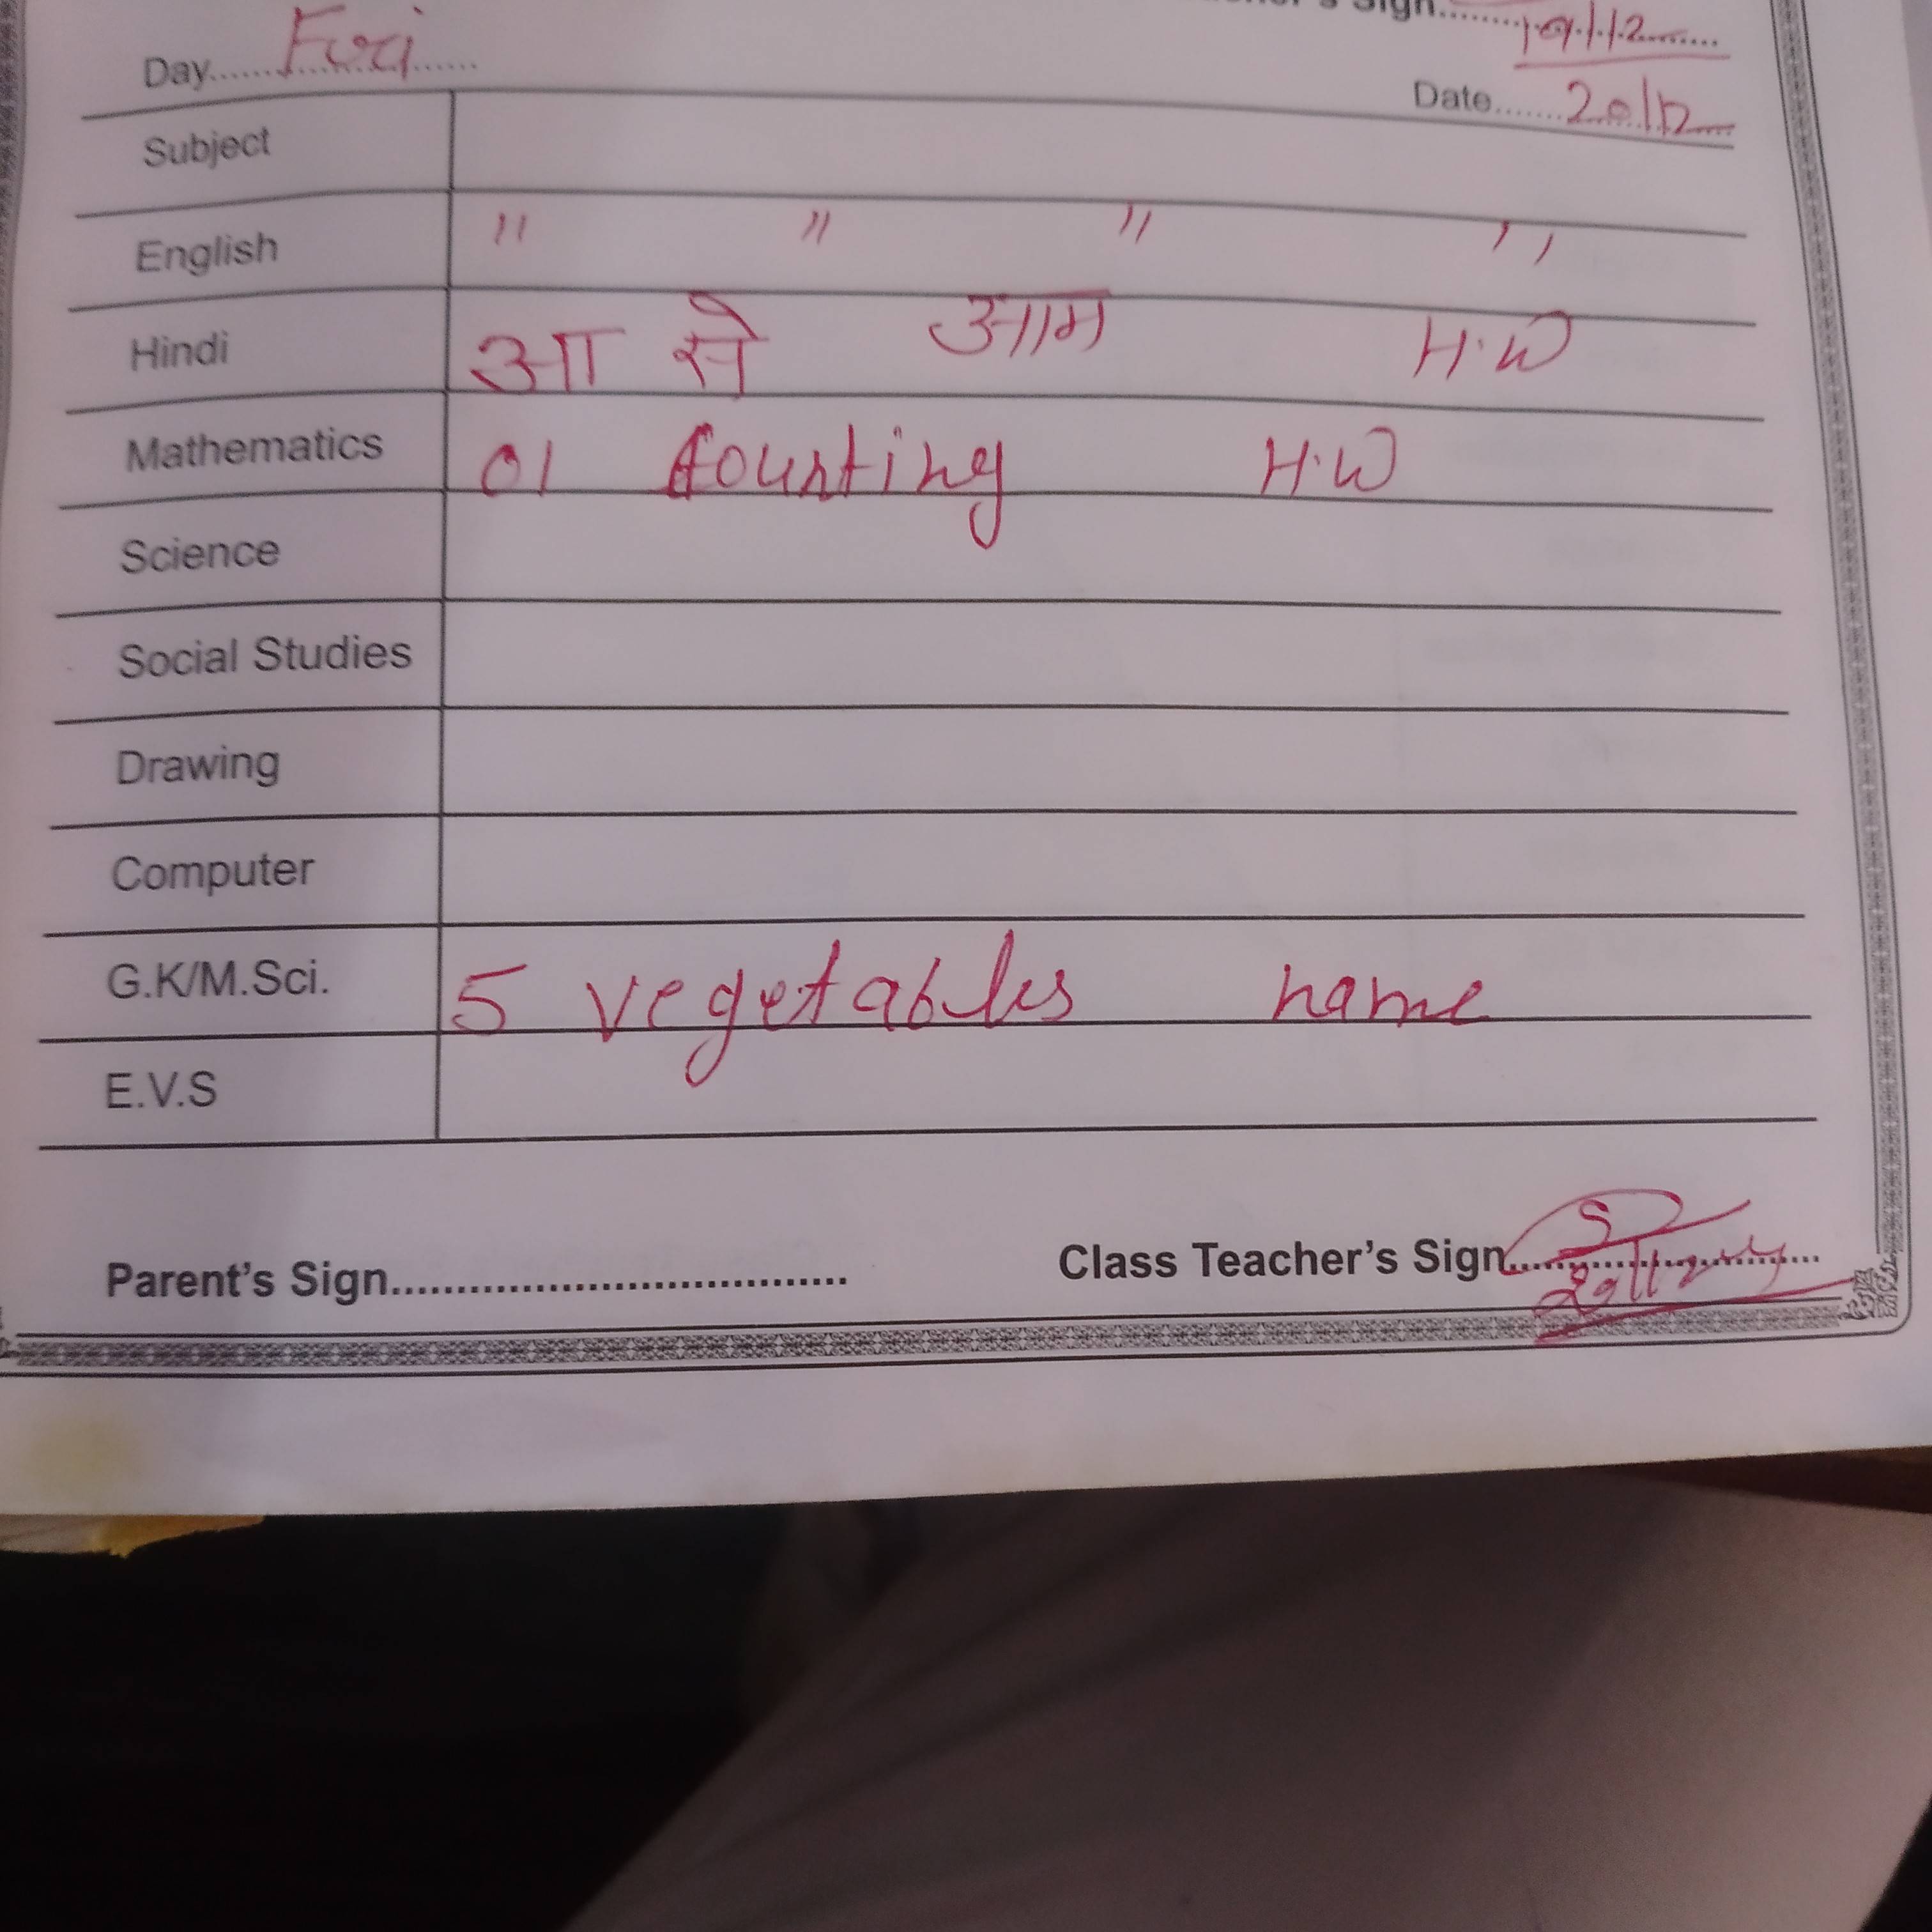 Sign.......... 19/12
Day.......... Fri
Date....... 20/12
Subject
English " " " "
Hindi आ से आम H.W
Mathematics 01 Counting H.W
Science
Social Studies
Drawing
Computer
G.K/M.Sci. 5 vegetables name
E.V.S
Parent's Sign................................... Class Teacher's Sign..........................